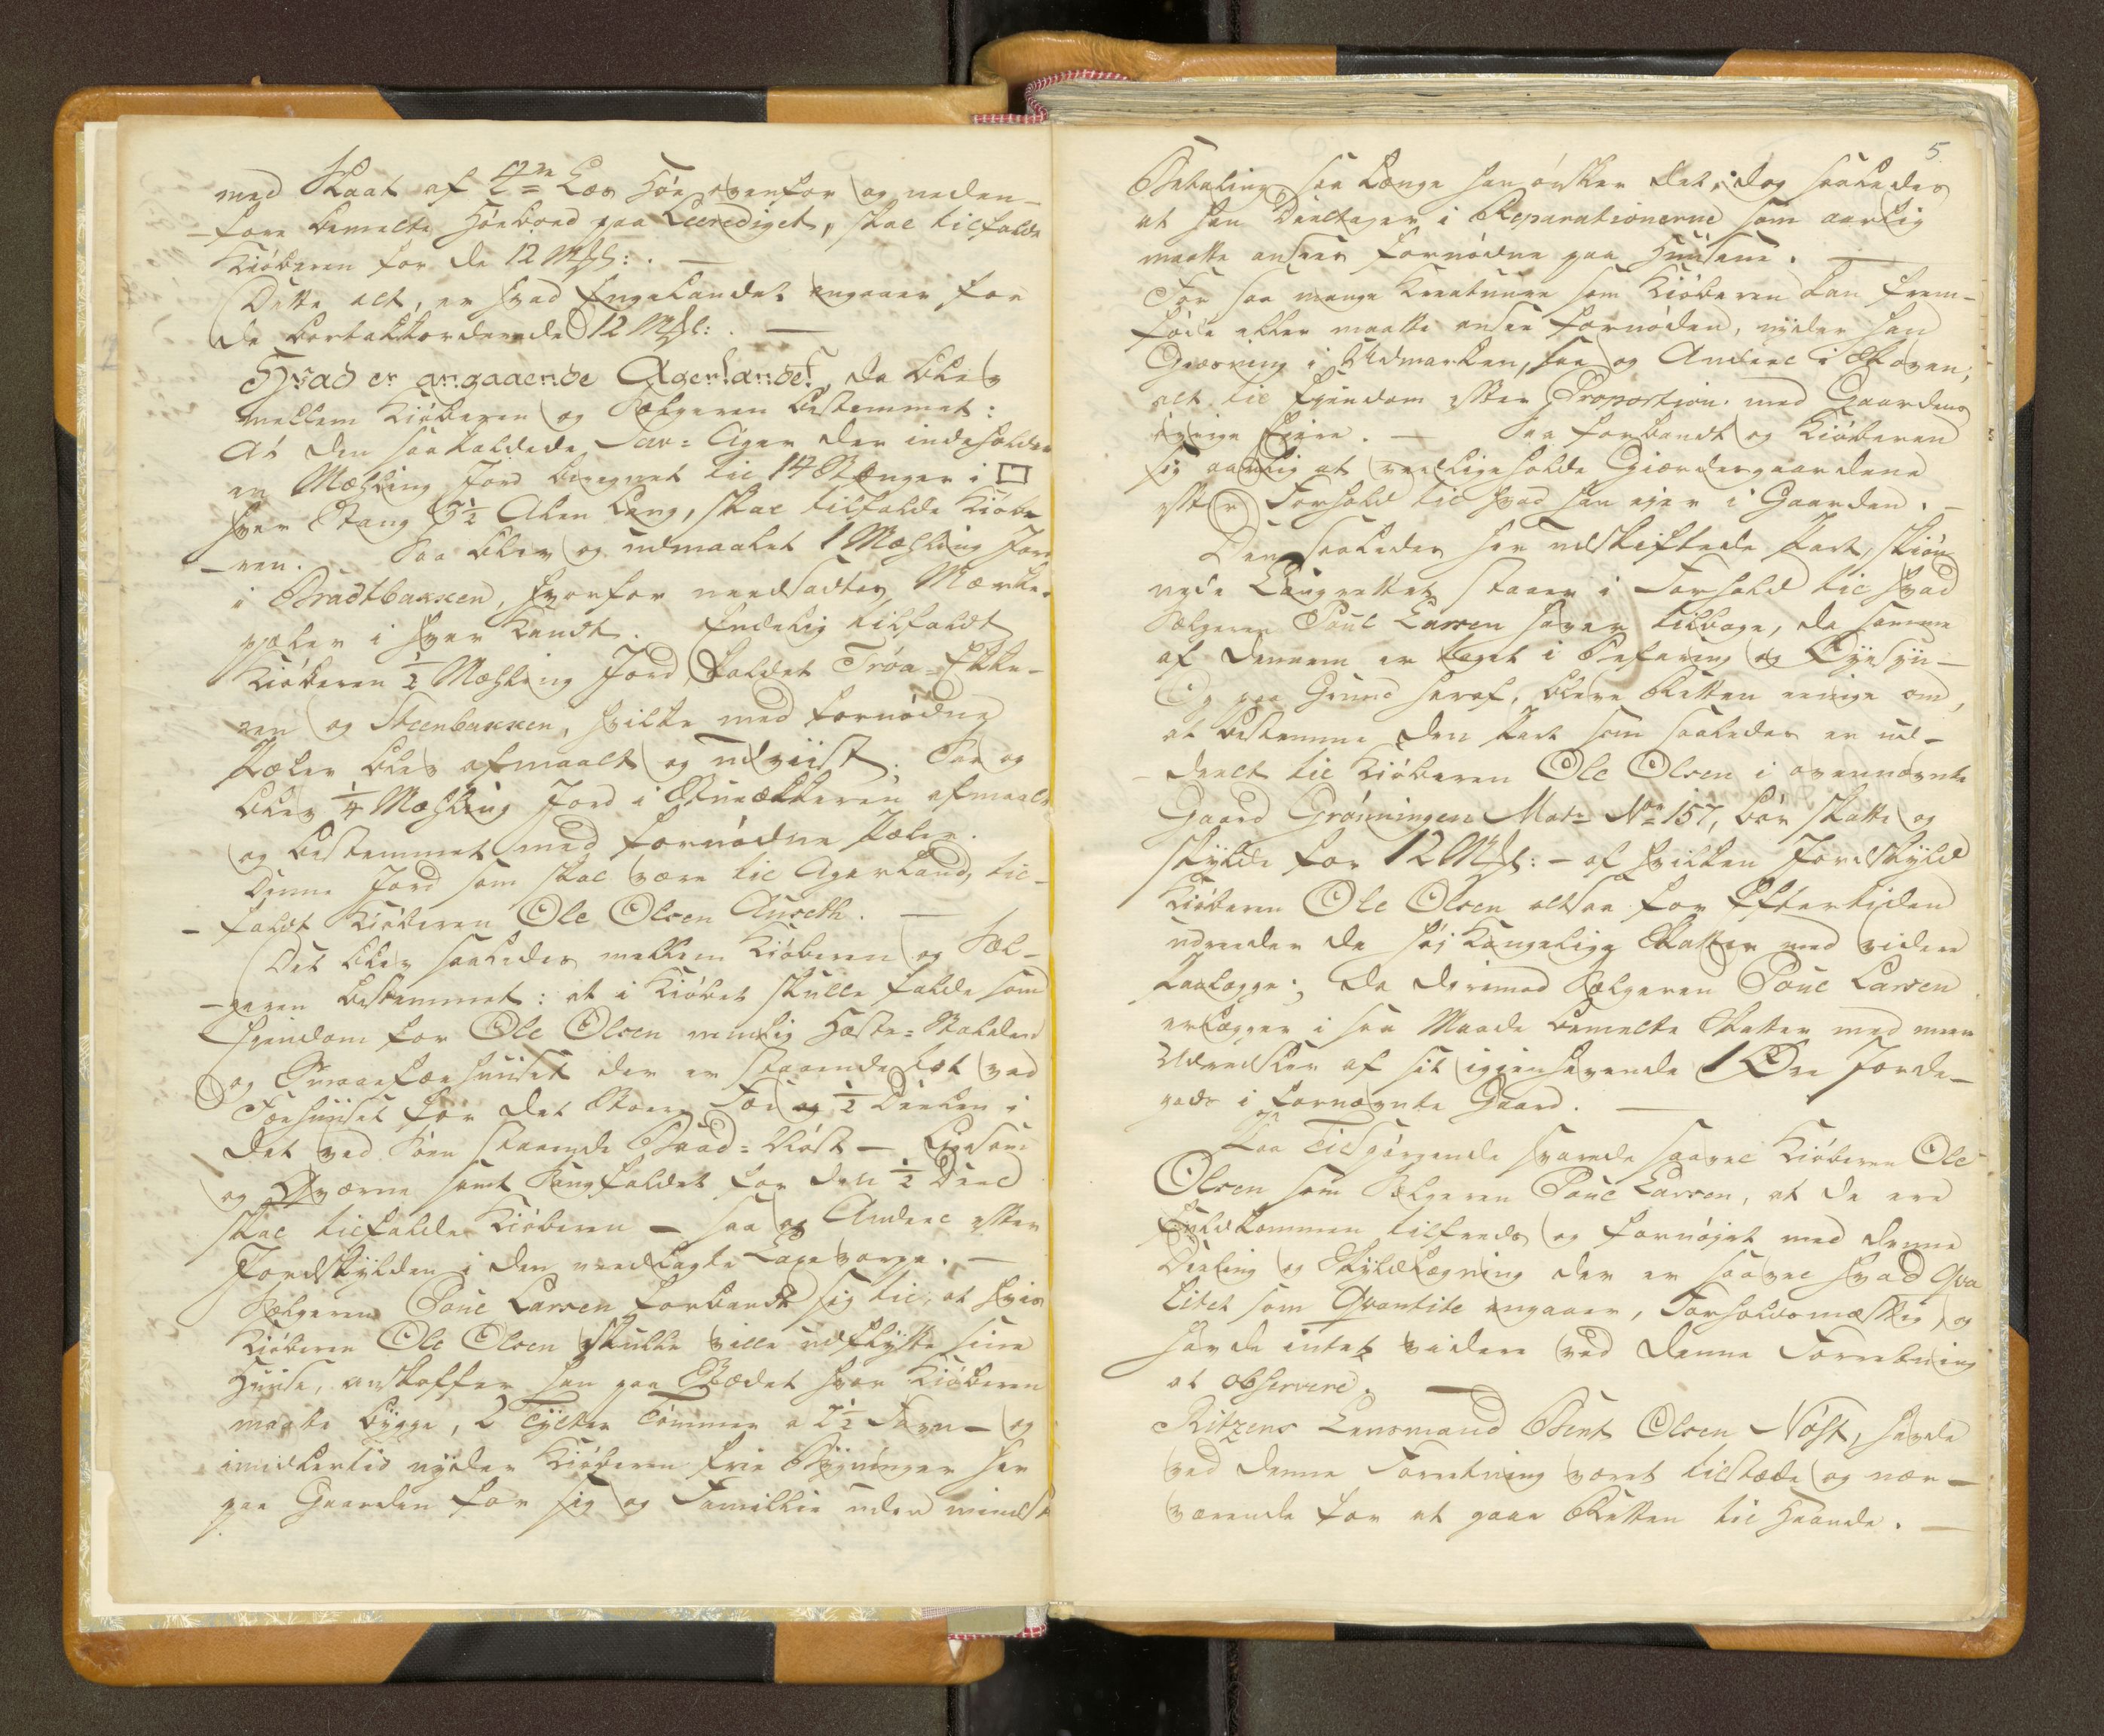 med Skaat af 4re Læs Høe ovenfor og neden-
-fore bemelte Høebord paa Leerediget, skal tilfalde
Kiøberen for de 12 Mrkl: . —
Dette alt, er hvad Engelandet angaaer for
de bortakkorderede 12 Mrkl: . —
Hvad er angaaende Agerlandet, da blev
mellem Kiøberen og Sælgeren bestemmet:
At den saakaldede Ager der indeholder
en Mæhling Jord beregnet til 14 Stænger i □
hver Stang 5½ Alen lang, skal tilfalde Kiøbe
-ren. Saa blev og udmaalet 1 Mæhling Jord
i Bradtbakken, hvorfor neensadtes Mærke-
pæler i hver Kandt. Endelig tilfaldt
Kiøberen ½ Mæhling Jord kaldet Trøa-Ekke-
ren og Steenbakken, hvilke med fornødne
Pæler blev afmaalt og udviist; Saa og
blev ¼ Mæhling Jord i afmaalt
og bestemmet med fornødne Pæler.
Denne Jord som skal være til Agerland, til-
- faldt Kiøberen Ole Olsen Aureth. —
Det blev saaledes mellem Kiøberen og Sæl-
-geren bestemmet: at i Kiøbet skulle falde som
Eiendom for Ole Olsen nemlig Heste-Stalden
og Smaaefæehuuset der er staaende tæt ved
Fæehuuset for det Store Fæe og ½ Deelen i
det ved Søen staaende Baad-Nøst — Ligesom
og Qværne samt Qvægfaldet for den ½ Deel
skal tilfalde Kiøberen — saa og Andeel efter
Jordskylden i den nedlagte Laxevarpe. —
Sælgeren Poul Larsen forbandt sig til, at hvis
Kiøberen Ole Olsen skulle ville udflytte sine
Huuse, anskaffer han paa Stædet hvor Kiøberen
maatte bygge, 2 Tylter Tømmer a 2½ Favn — og
imidlertid nyder Kiøberen frie Bygninger her
paa Gaarden for sig og Famillie uden mindste
5.
Betaling saa længe han ønsker det; dog saaledes
at han Deeltager i Reparationerne som aarlig
maatte ansees fornødne paa Huusene. —
For saa mange Kreature som Kiøberen kan frem-
føde eller maatte ansee fornøden, nyder han
Græsning i Udmarken, saa og Andeel i Skoven,
alt til Eiendom efter Proportion med Gaardens
øvrige Eiere. — Saa forbandt og Kiøberen
sig aarlig at vedligeholde Giærdesgaardene
efter Forhold til hvad han eier i Gaarden. —
Den saaledes her udskiftede Part, skiøn
nede Laugrettet staaer i Forhold til hvad
Sælgeren Poul Larsen haver tilbage, da samme
af dennem er taget i Befaring og Øyesyn —
Og paa Grund heraf, bleve Retten eenige om,
at bestemme den Part som saaledes er ud-
- deelt til Kiøberen Ole Olsen i ovennævnte
Gaard Grønningen Matr: No 157, bør skatte og
skylde for 12 Mrkl: — af hvilken Jordskyld
Kiøberen Ole Olsen altsaa for Eftertiden
udreeder de høi Kongelige Skatter med videre
Paalægge; da derimod Sælgeren Poul Larsen
erlægger i saa Maade bemelte Skatter med meere
Udredsler af sit igienhavende 1 Øre Jorde-
gods i fornævnte Gaard. —
Paa Tilspørgende svarede saavel Kiøberen Ole
Olsen som Sælgeren Poul Larsen, at de ere
fuldkommen tilfreds og fornøjet med denne
Deeling og Skyldlægning der er saavel hvad Qva
litet som Qvantitet angaaer, Forholdsmæssig, og
havde intet videre ved denne Forretning
at observere. —
Ritzens Lensmand Bent Olsen Nøst, havde
ved denne Forretning været tilstæde og nær-
værende for at gaae Retten til Haande. —